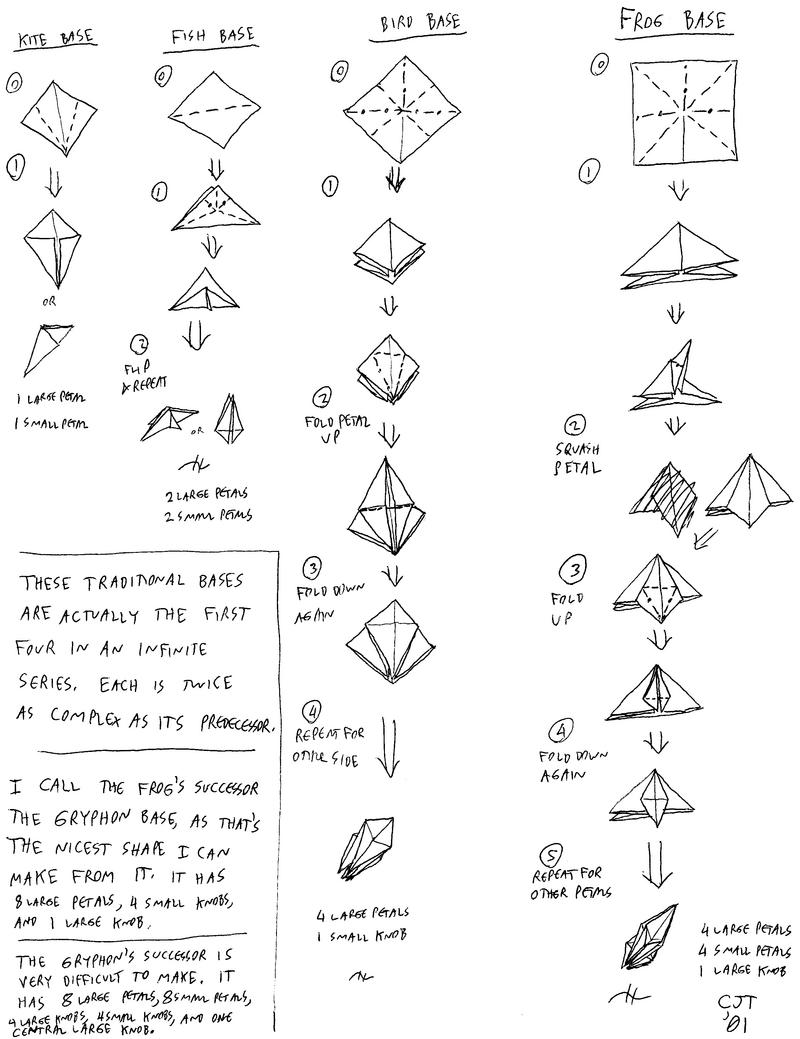 KITE BASE
0
1
OR
1 LARGE PETAL
1 SMALL PETAL
FISH BASE
0
1
2
FLIP
& REPEAT
OR
2 LARGE PETALS
2 SMALL PETALS
BIRD BASE
0
1
2
FOLD PETAL
UP
3
FOLD DOWN
AGAIN
4
REPEAT FOR
OTHER SIDE
4 LARGE PETALS
1 SMALL KNOB
FROG BASE
0
1
2
SQUASH
PETAL
3
FOLD
UP
4
FOLD DOWN
AGAIN
5
REPEAT FOR
OTHER PETALS
4 LARGE PETALS
4 SMALL PETALS
1 LARGE KNOB
CJT
'01
THESE TRADITIONAL BASES
ARE ACTUALLY THE FIRST
FOUR IN AN INFINITE
SERIES. EACH IS TWICE
AS COMPLEX AS ITS PREDECESSOR.
I CALL THE FROG'S SUCCESSOR
THE GRYPHON BASE, AS THAT'S
THE NICEST SHAPE I CAN
MAKE FROM IT. IT HAS
8 LARGE PETALS, 4 SMALL KNOBS,
AND 1 LARGE KNOB.
THE GRYPHON'S SUCCESSOR IS
VERY DIFFICULT TO MAKE. IT
HAS 8 LARGE PETALS, 8 SMALL PETALS,
4 LARGE KNOBS, 4 SMALL KNOBS, AND ONE
CENTRAL LARGE KNOB.